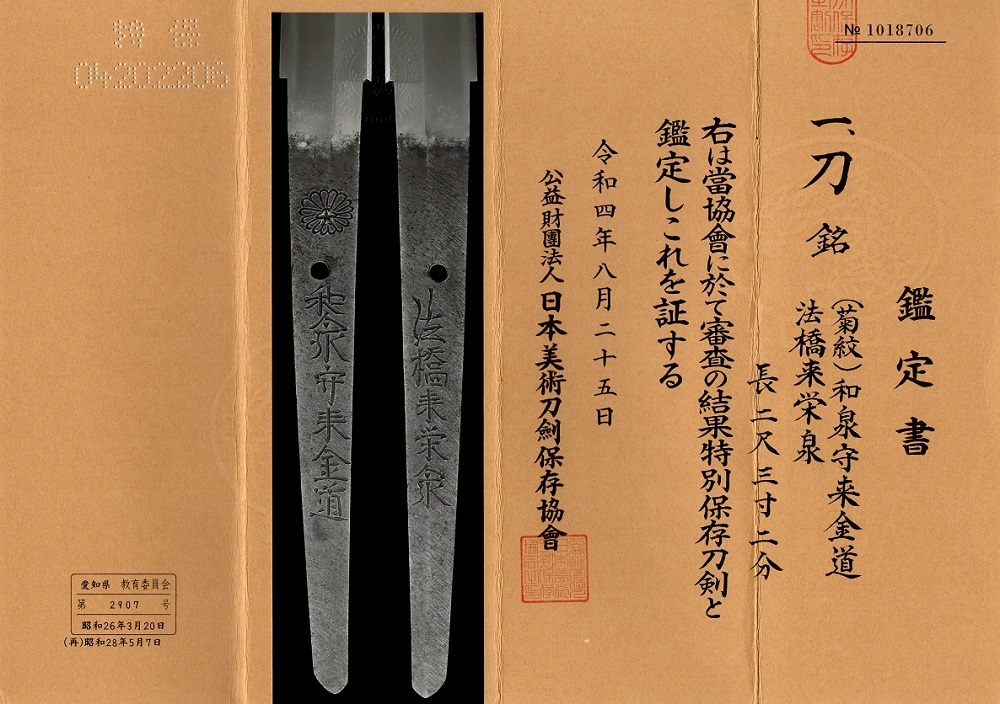 № 1018706
鑑定書
一、刀 銘 (菊紋)和泉守来金道
法橋来栄泉
長二尺三寸二分
右は當協會に於て審査の結果特別保存刀剣と
鑑定しこれを証する
令和四年八月二十五日
公益財團法人 日本美術刀劍保存協會
和泉守来金道
法橋来栄泉
特保
04202206
愛知県 教育委員会
第 2907 号
昭和26年3月20日
(再)昭和28年5月7日